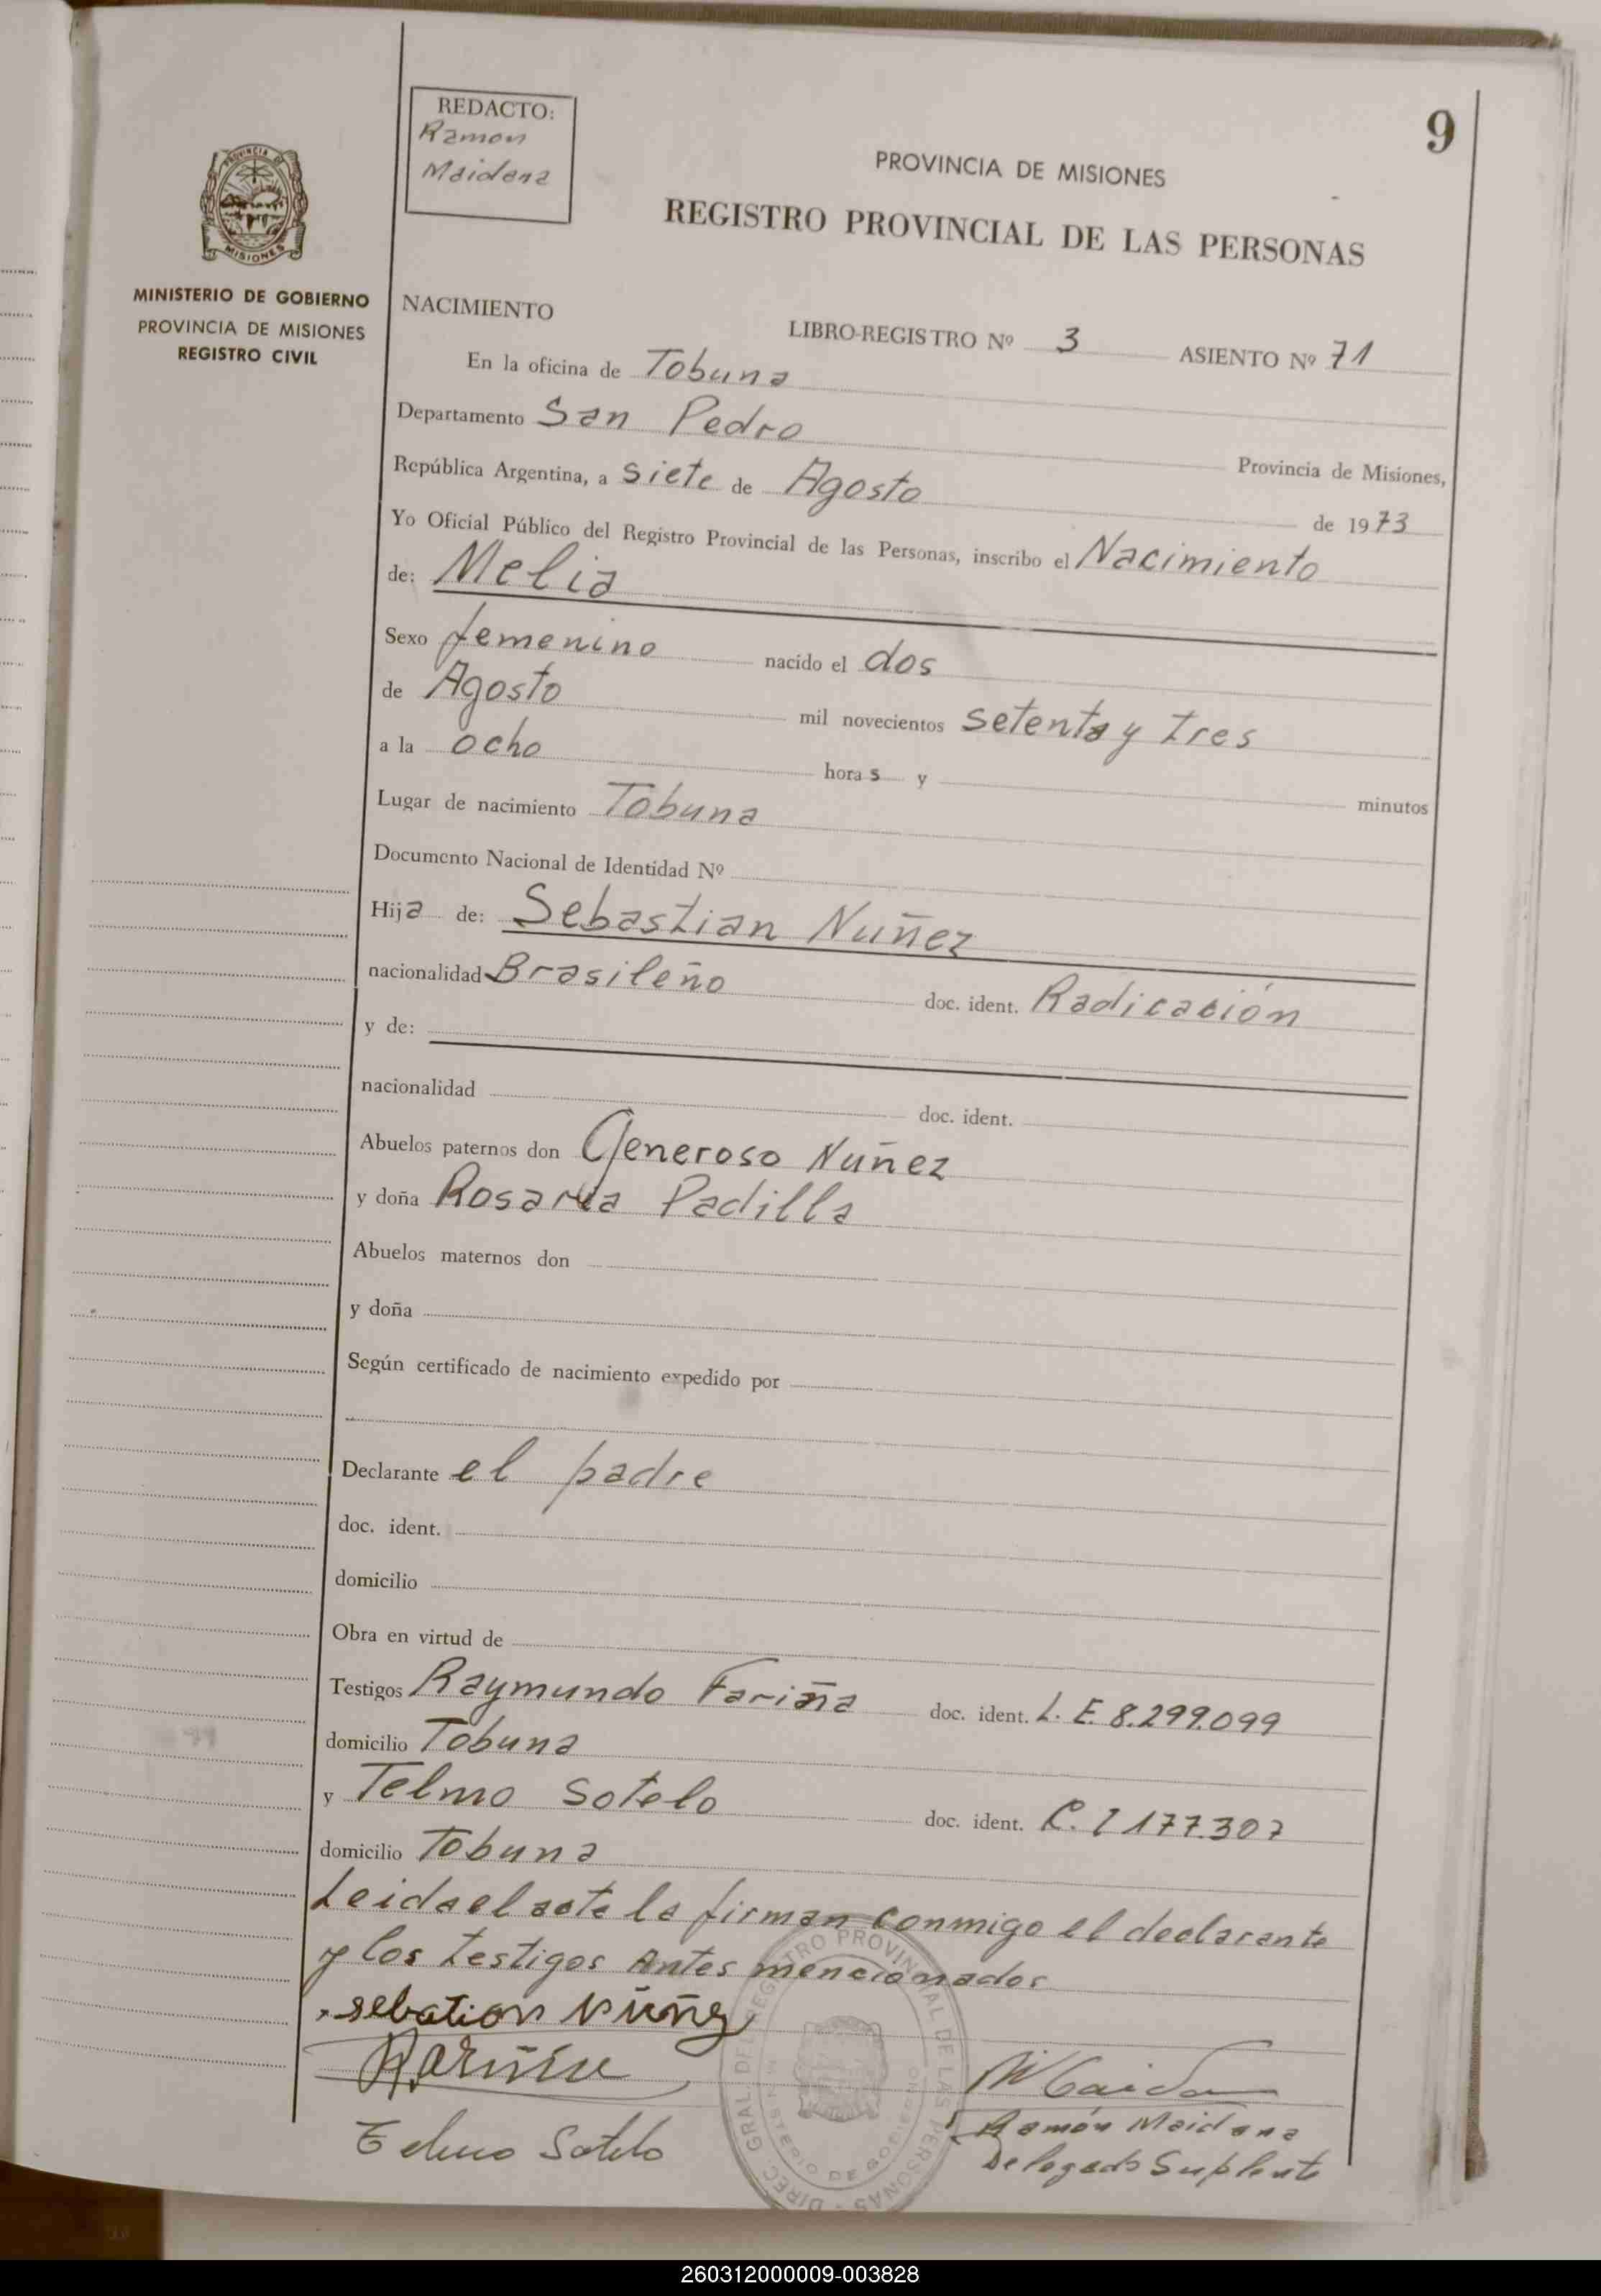 REDACTO:
Ramon
Maidana
9
PROVINCIA DE MISIONES
REGISTRO PROVINCIAL DE LAS PERSONAS
PROVINCIA DE
MISIONES
MINISTERIO DE GOBIERNO
PROVINCIA DE MISIONES
REGISTRO CIVIL
NACIMIENTO
LIBRO-REGISTRO Nº 3 ASIENTO Nº 71
En la oficina de Tobuna
Departamento San Pedro Provincia de Misiones,
República Argentina, a siete de Agosto de 1973
Yo Oficial Público del Registro Provincial de las Personas, inscribo el Nacimiento
de: Melia
Sexo femenino nacido el dos
de Agosto mil novecientos setenta y tres
a la ocho horas y minutos
Lugar de nacimiento Tobuna
Documento Nacional de Identidad Nº
Hija de: Sebastian Nuñez
nacionalidad Brasileño doc. ident. Radicación
y de:
nacionalidad doc. ident.
Abuelos paternos don Generoso Nuñez
y doña Rosaria Padilla
Abuelos maternos don
y doña
Según certificado de nacimiento expedido por
Declarante el padre
doc. ident.
domicilio
Obra en virtud de
Testigos Raymundo Fariña doc. ident. L. E. 8.299.099
domicilio Tobuna
y Telmo Sotelo doc. ident. C. I 177.307
domicilio Tobuna
Leida el acta la firman conmigo el declarante
y los testigos Antes mencionados
sebation Nuñez
Telmo Sotelo
Ramón Maidana
Delegado Suplente
DIREC. GRAL. DEL REGISTRO PROVINCIAL DE LAS PERSONAS
MINISTERIO DE GOBIERNO
260312000009-003828